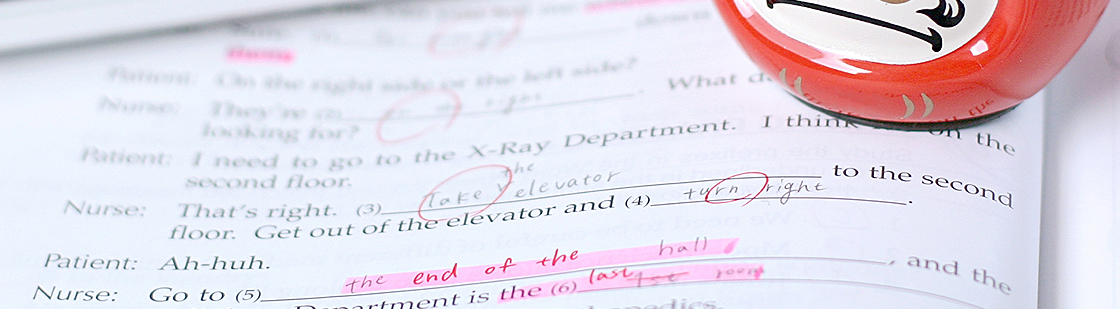 Patient: On the right side or the left side?
Nurse: They're on right. What
looking for?
Patient: I need to go to the X-Ray Department. I think on the
second floor.
Nurse: That's right. (3) Take the elevator to the second
floor. Get out of the elevator and (4) turn right.
Patient: Ah-huh.
Nurse: Go to (5) the end of the hall, and the
Department is the (6) last room